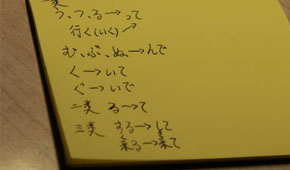 う、つ、る→って
行く(いく)↗
む、ぶ、ぬ、→んで
く→いて
ぐ→いで
二类 る→て
三类 する→して
来る→来て